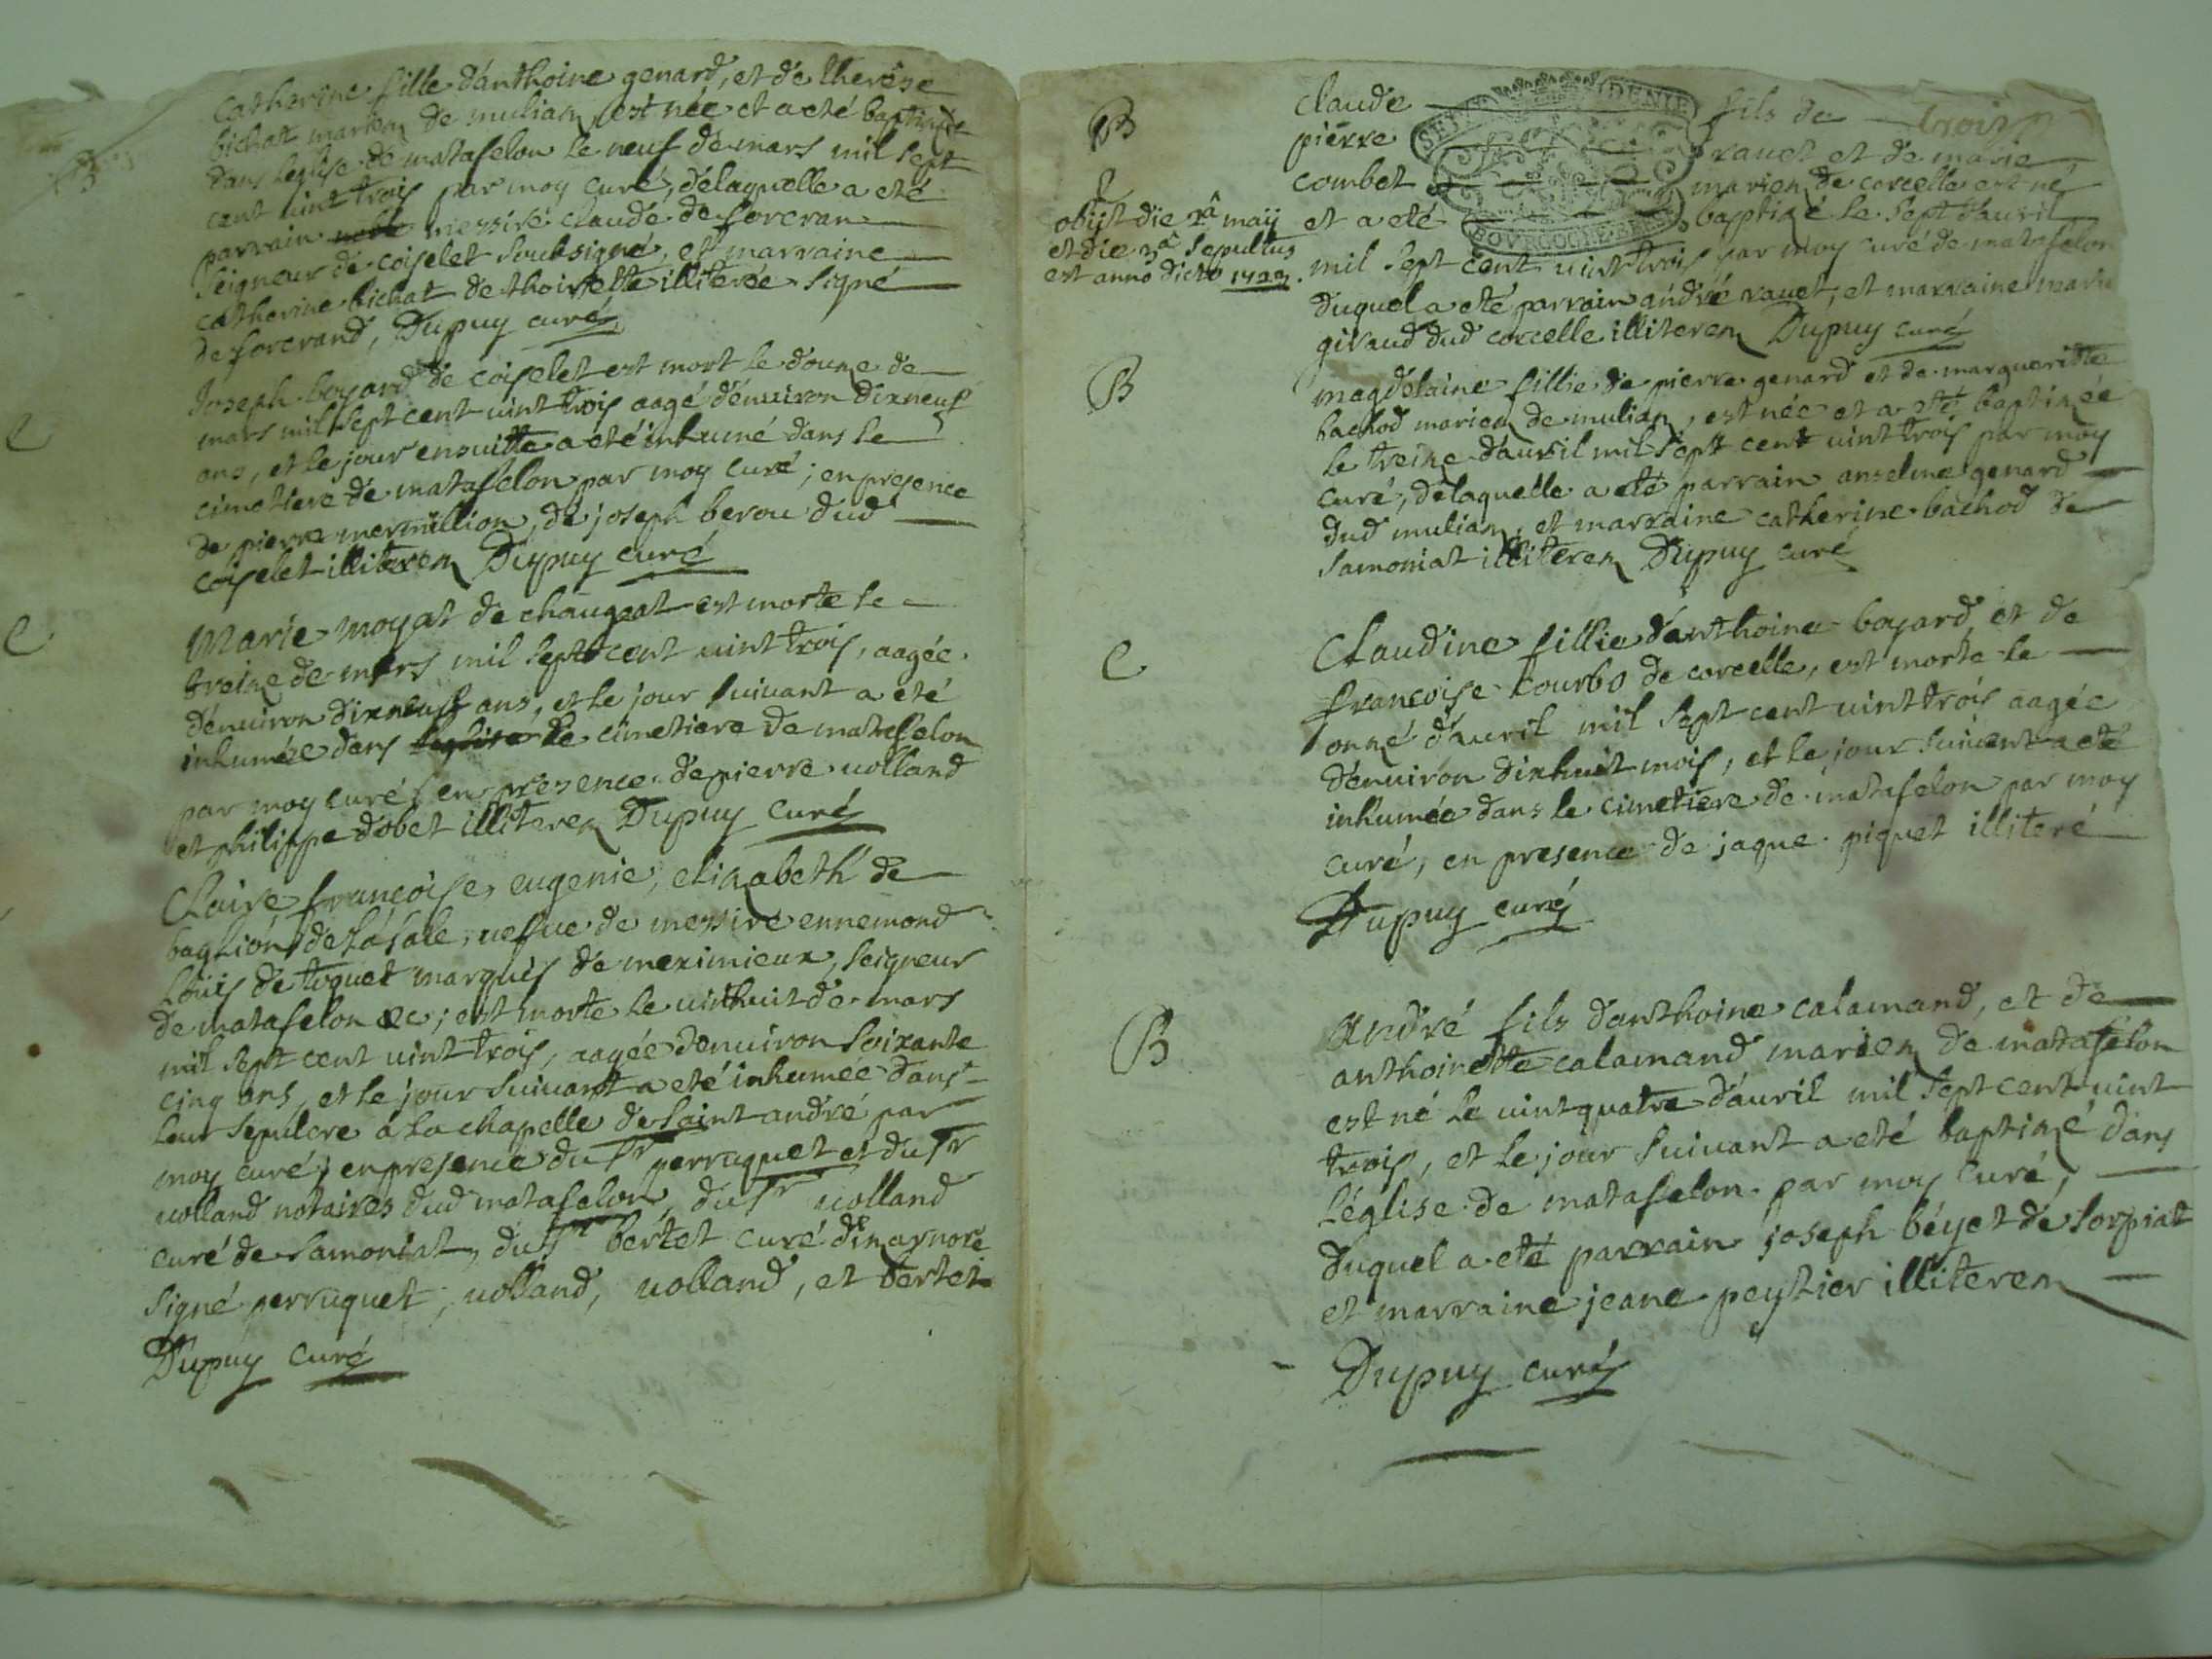 B
Catherine fille d'anthoine genard, et de therese
bichat mariez de mulian, est née et a eté baptisée
dans leglise de matafelon le neuf de mars mil sept
cent uint trois par moy curé, de laquelle a eté
parrain messire claude de forcran
seigneur de coiselet soubsigné, et marraine
catherine bichat de thoirette illiterée signé
de forcrand, Dupuy curé
C
Joseph boyard de coiselet est mort le douze de
mars mil sept cent uint trois aagé d'enuiron dixneuf
ans, et le jour ensuitte a eté inhumé dans le
cimetiere de matafelon par moy curé; en presence
de pierre mermillion, de joseph berou dud
coiselet illiterez Dupuy curé
C
Marie moyat de chaugeat est morte le
treize de mars mil sept cent uint trois, aagée
d'enuiron dixneuf ans, et le jour suiuant a eté
inhumée dans leglise le cimetiere de matafelon
par moy curé en presence de pierre uolland
et philippe dobet illiterez Dupuy curé
Claire françoise, eugenie, elizabeth de
baglion de la sale, uefue de messire ennemond
Louis de toquet marquis de meximieux, seigneur
de matafelon &c; est morte le uinthuit de mars
mil sept cent uint trois, aagée d'enuiron soixante
cinq ans, et le jour suiuant a eté inhumée dans
leur sepulcre a la chapelle de saint andré par
moy curé, en presence du sr perruquet et du sr
uolland notaires dud matafelon, du sr uolland
curé de samoniat, du sr bertet curé dizarnore
signé perruquet, uolland, uolland, et bertet
Dupuy curé
B
claude fils de
pierre rauet et de marie
combet mariez de corcelle est né
et a eté baptizé le sept d'auril
mil sept cent uint trois par moy curé de matafelon
duquel a eté parrain andré rauet, et marraine marie
giraud dud corcelle illiterez Dupuy curé
obijt die 2a maij
et die 3a sepultus
est anno dicto 1723.
B
magdelaine fillie de pierre genard et de margueritte
bachod mariez de mulian, est née et a eté baptizée
le treize d'auril mil sept cent uint trois par moy
curé, de laquelle a eté parrain anselme genard
dud mulian, et marraine catherine bachod de
samoniat illiterez Dupuy curé
C
Claudine fillie d'anthoine boyard et de
françoise courbo de corcelle, est morte le
onzé d'auril mil sept cent uint trois aagée
d'enuiron dixhuit mois, et le jour suiuent a eté
inhumée dans le cimetiere de matafelon par moy
curé, en presence de jaque piquet illiteré
Dupuy curé
B
André fils d'anthoine calamand, et de
anthoinette calamand mariez de matafelon
est né le uint quatre d'auril mil sept cent uint
trois, et le jour suiuant a eté baptizé dans
l'église de matafelon par moy curé,
duquel a eté parrain joseph béyet de sorpiat
et marraine jeane peytier illiterez
Dupuy curé